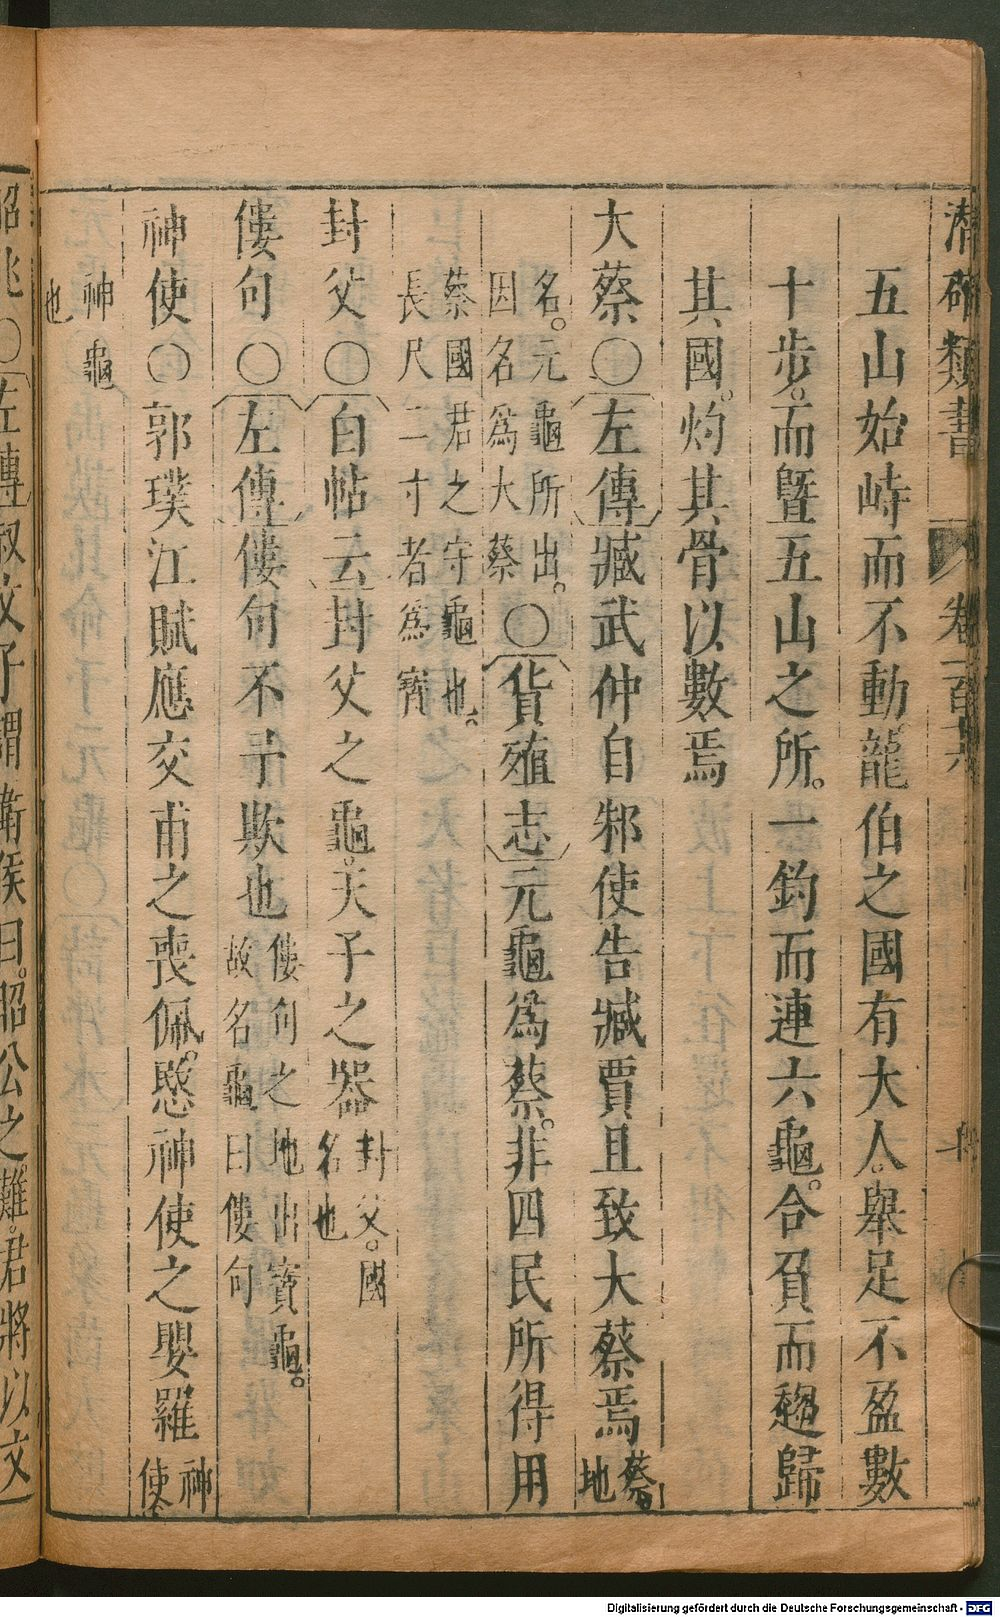 潛確類書 卷一百六
五山始峙而不動龍伯之國有大人。舉足不盈數
十步。而暨五山之所。一釣而連六龜。合負而趨歸
其國。灼其骨以數焉
大蔡○左傳臧武仲自邾使告臧賈且致大蔡焉蔡。地
名。元龜所出。因名爲大蔡○貨殖志元龜爲蔡。非四民所得用
蔡國君之守龜也。長尺二寸者爲寶
封父○白帖云封父之龜。天子之器封父。國名也
僂句○左傳僂句不予欺也僂句之地出寶龜。故名龜曰僂句
神使○郭璞江賦應交甫之喪佩。愍神使之嬰羅神使
神龜也
昭兆○左傳叔文子謂衛侯曰。昭公之難。君將以文
Digitalisierung gefördert durch die Deutsche Forschungsgemeinschaft - DFG